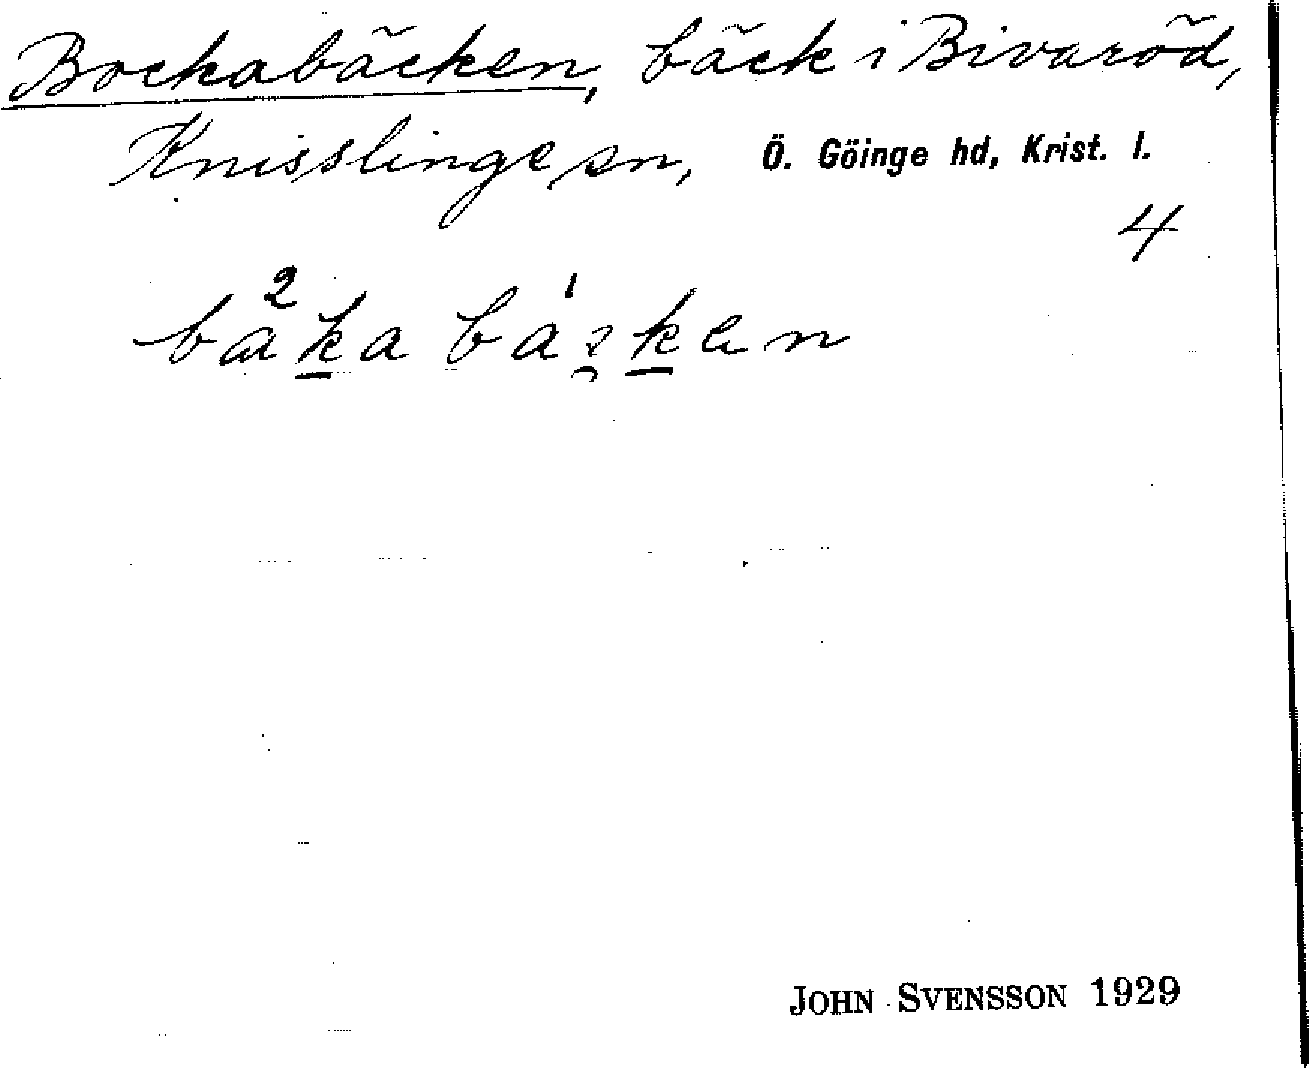 Bockabäcken, bäck i Bivaröd,
Knisslinge sn, Ö. Göinge hd, Krist. l.
4
JOHN SVENSSON 1929